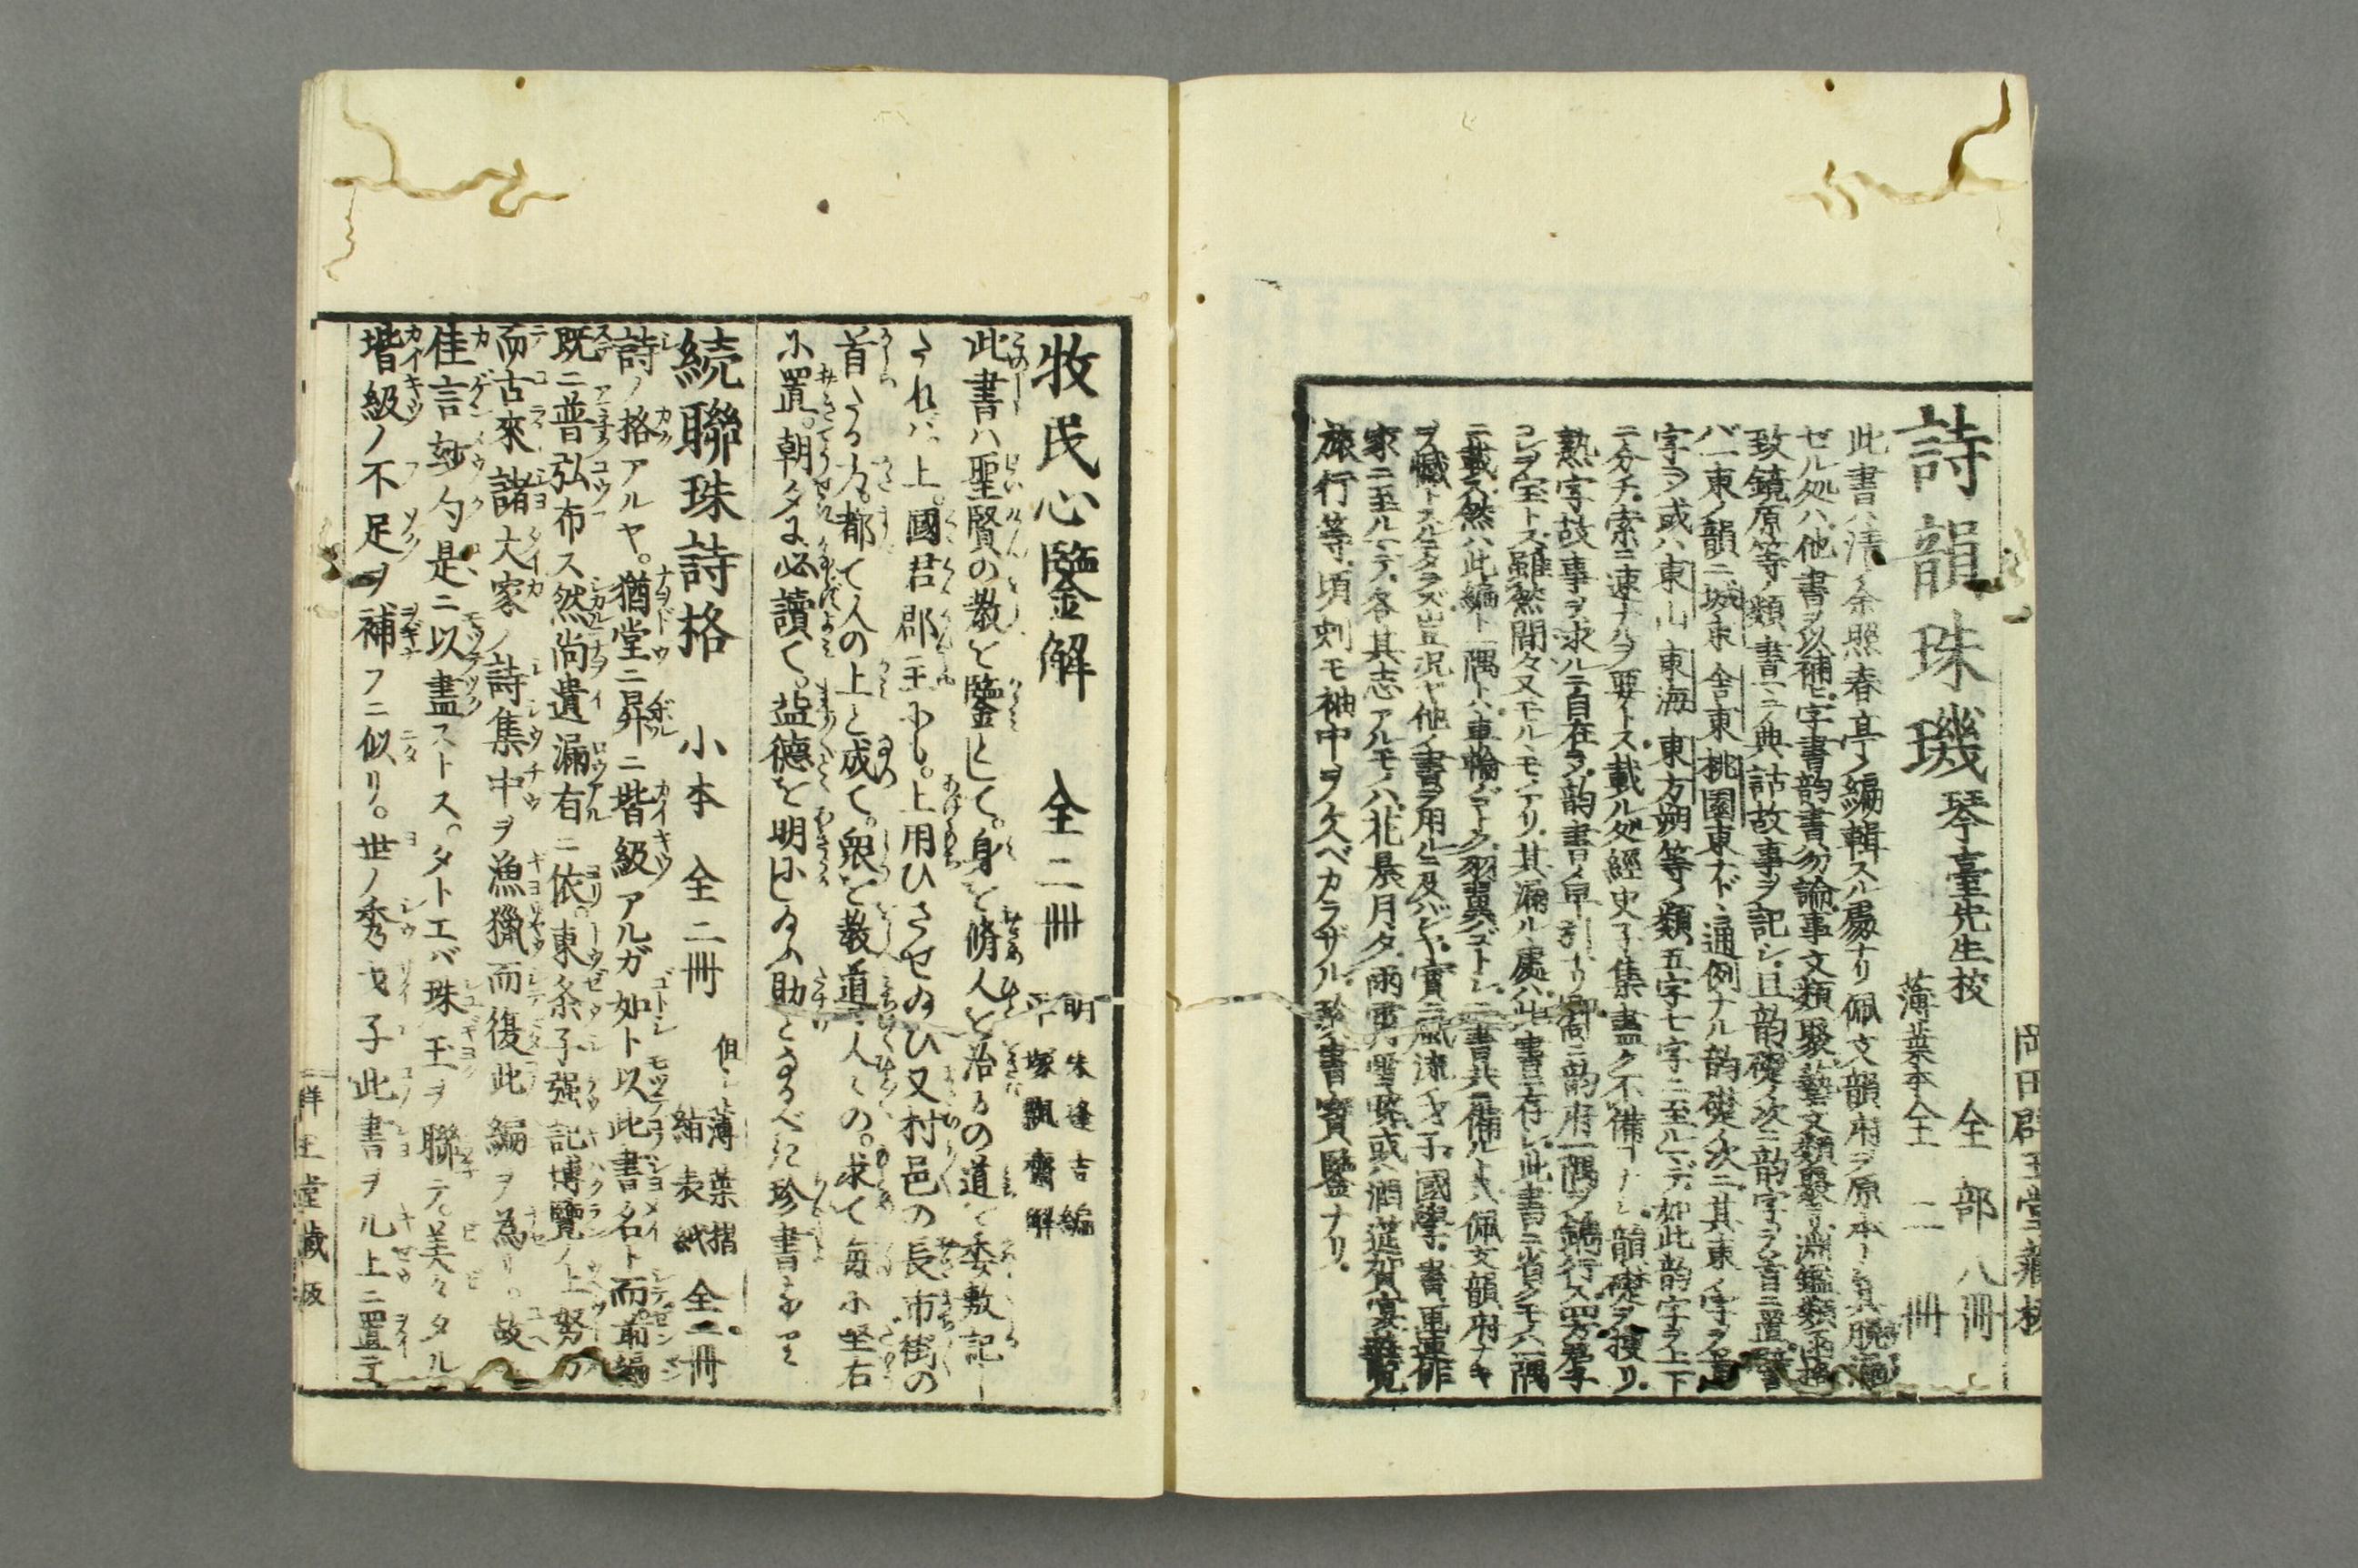 岡田群玉堂藏板
詩韻珠璣 琴臺先生校 全部八冊
薄葉本全二冊
此書ハ清ノ余照春亭ノ編輯スル處ナリ佩文韻府ヲ原本トシ其脱漏
セル処ハ他書ヲ以補ヒ字書韵書勿論事文類聚藝文類聚淵鑑類函格
致鏡原等ノ類書ニノ典詁故事ヲ記シ且韵礎ノ次ニ韵字ヲ首ニ置
バ一東ノ韻ニ城東舎東桃園東ナド通例ナル韵礎ノ次ニ其東ノ字ヲ首
字ヲ或ハ東山東海東方朔等ノ類五字七字ニ至ルマデ如此韵字ヲ上下
ニ分チ索ニ速ナルヲ要トス載ル処經史子集盡ク不備コナシ韻礎ヲ捜リ
熟字故事ヲ求ルニ自在ヲ韵書ノ早引ナリ嚮ニ韵府一隅ヲ鐫行ス四方君子
コレヲ宝トス雖然間々又モルヽモノアリ其漏ル處ハ此書ニ存シ此書ニ省クモノハ一隅
ニ載ス然ハ此編ト一隅トハ車輪ノゴトク羽翼ノゴトシ二書共ニ備ルトキハ佩文韻府ナキ
ヲ憾トスルニタラズ豈況ヤ他ノ書ヲ用ルニ及バンヤ實ニ風流ノ才子國學書画連俳
家ニ至ルマテ各其志アルモノハ花晨月夕雨雪或ハ酒莚賀宴遊覧
旅行等頃刻モ袖中ヲ欠ベカラザル珎書寳鑒ナリ。
牧民心鑒解 全二冊 明朱逢吉編
平塚飄齋解
此書ハ聖賢の教を鑒として。身を脩人を治るの道を委敷記し
たれバ。上。國君郡主より。上用ひさせ給ひ又村邑の長市街の
首たる方。都て人の上と成て。衆を教道く人々の。求て毎に坐右
に置。朝夕に必讀て。益德を明にし給ふ助となるべき珍書なり
続聯珠詩格 小本 全二冊 但シ薄葉摺
紬表紙 全一冊
詩ノ格アルヤ。猶堂ニ昇ニ堦級アルガ如ト以此書名ト而。前編
既ニ普弘布ス然尚遺漏有ニ依。東条子强記博覽ノ上努力
而古來諸大家ノ詩集中ヲ漁獵而復此編ヲ為リ。故
佳言妙句是ニ以盡ストス。タトエバ珠玉ヲ聯テ。美々タル
堦級ノ不足ヲ補フニ似リ。世ノ秀才子此書ヲ几上ニ置テ
群玉堂藏板